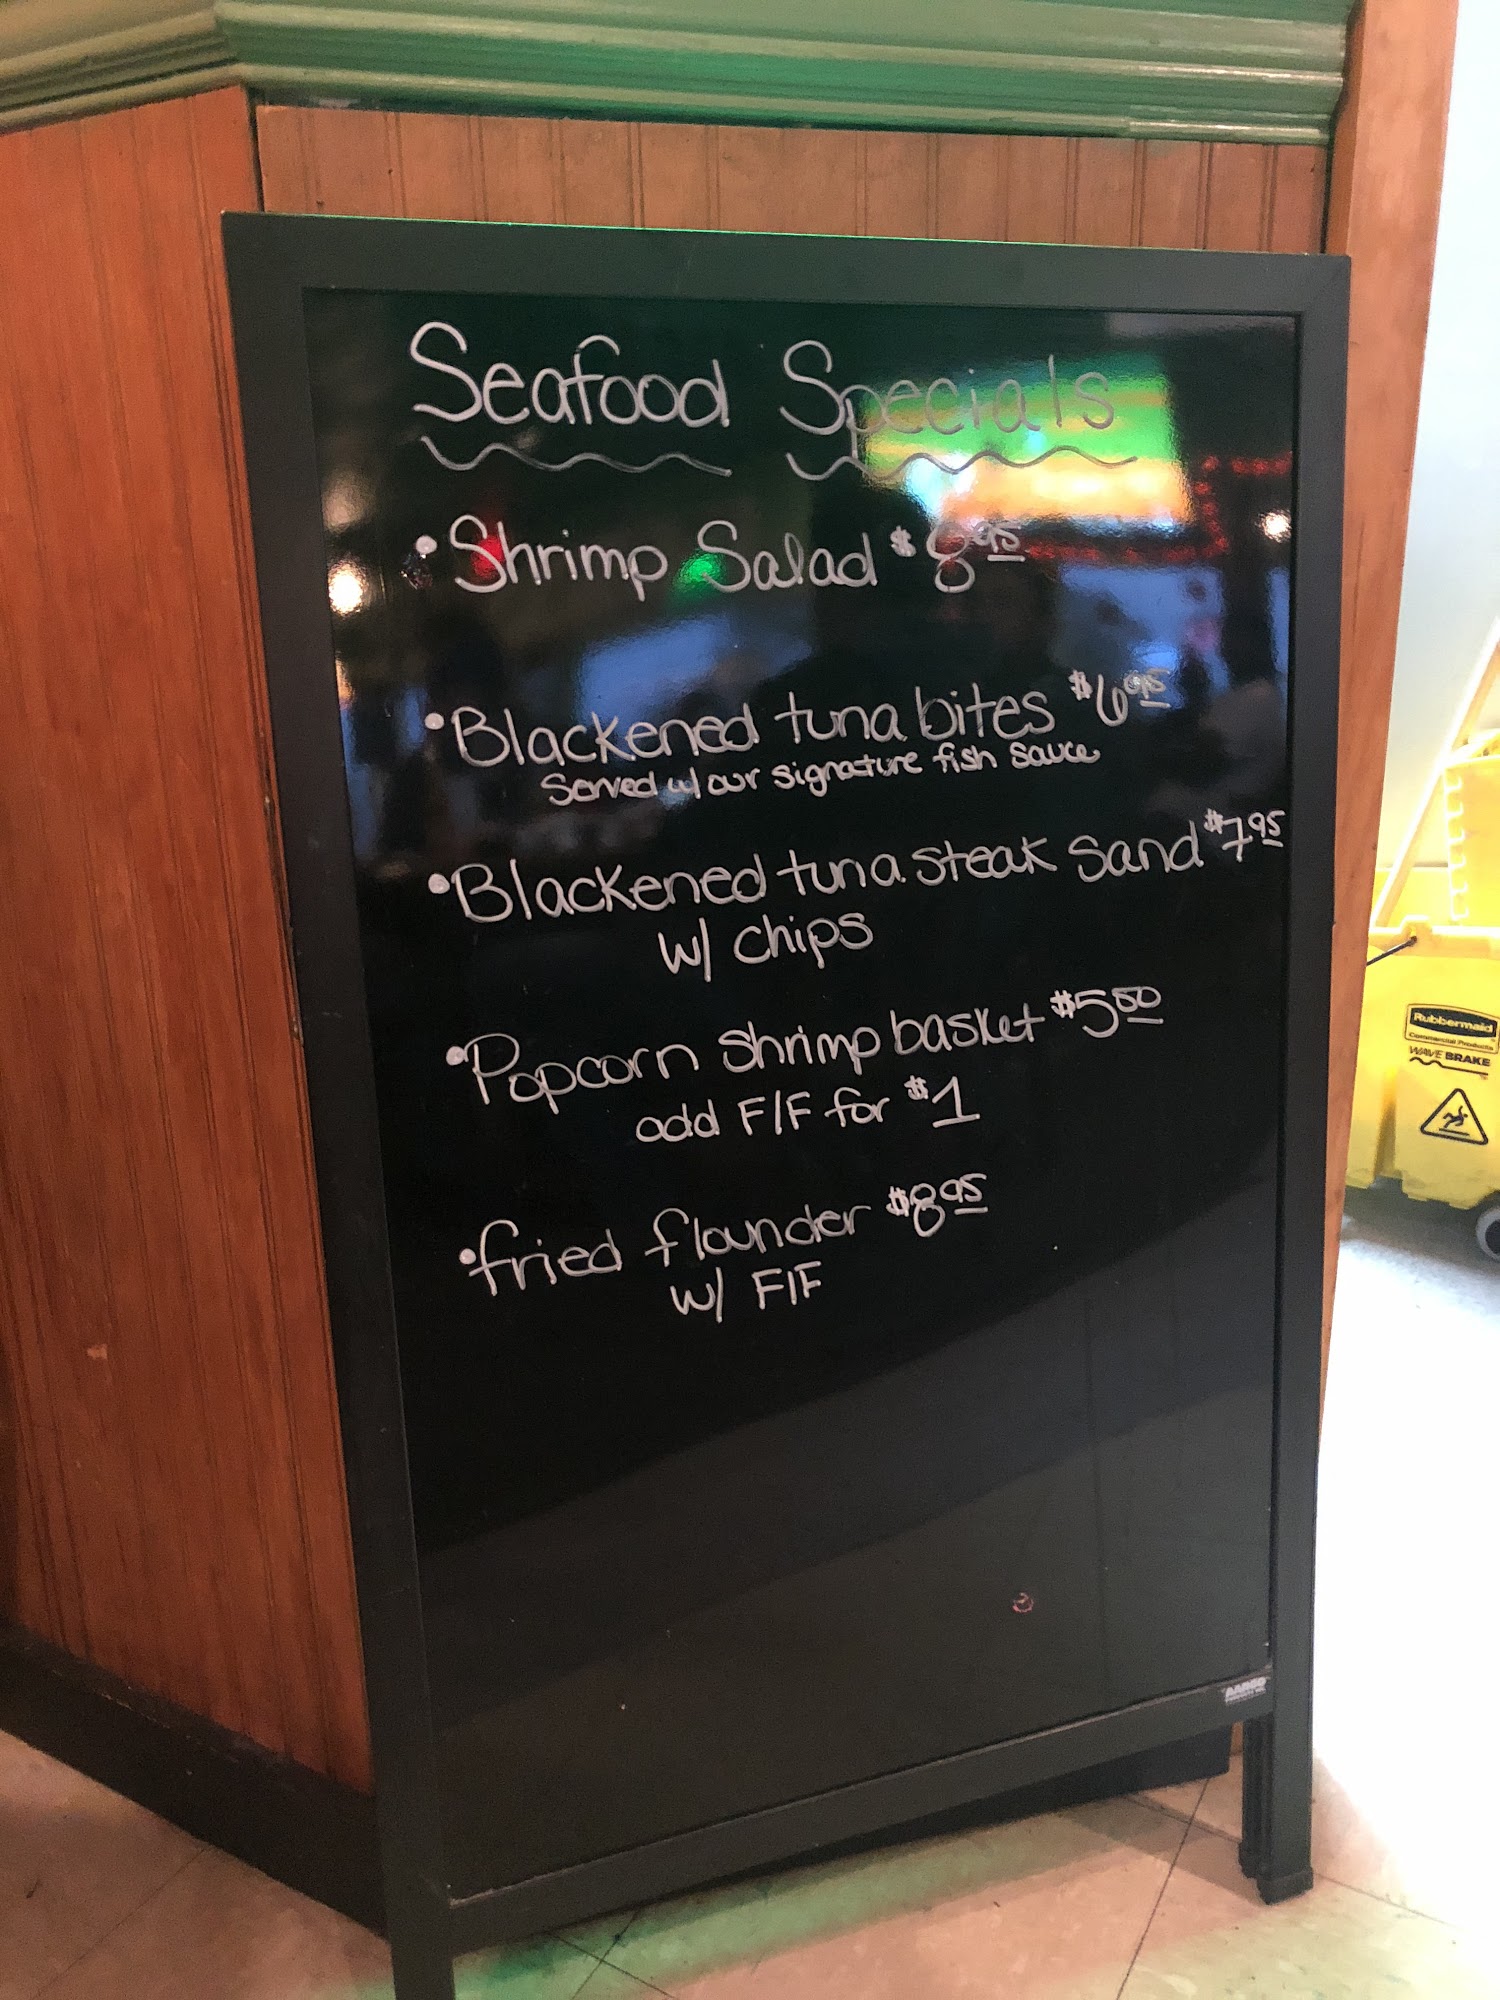 Seafood Specials
• Shrimp Salad $8.95
• Blackened tuna bites $6.95
Served w/ our signature fish sauce
• Blackened tuna steak sand $7.95
w/ chips
• Popcorn shrimp basket $5.50
add F/F for $1
• fried flounder $8.95
w/ F/F
Rubbermaid
Commercial Products
WAVE BRAKE
AARCO